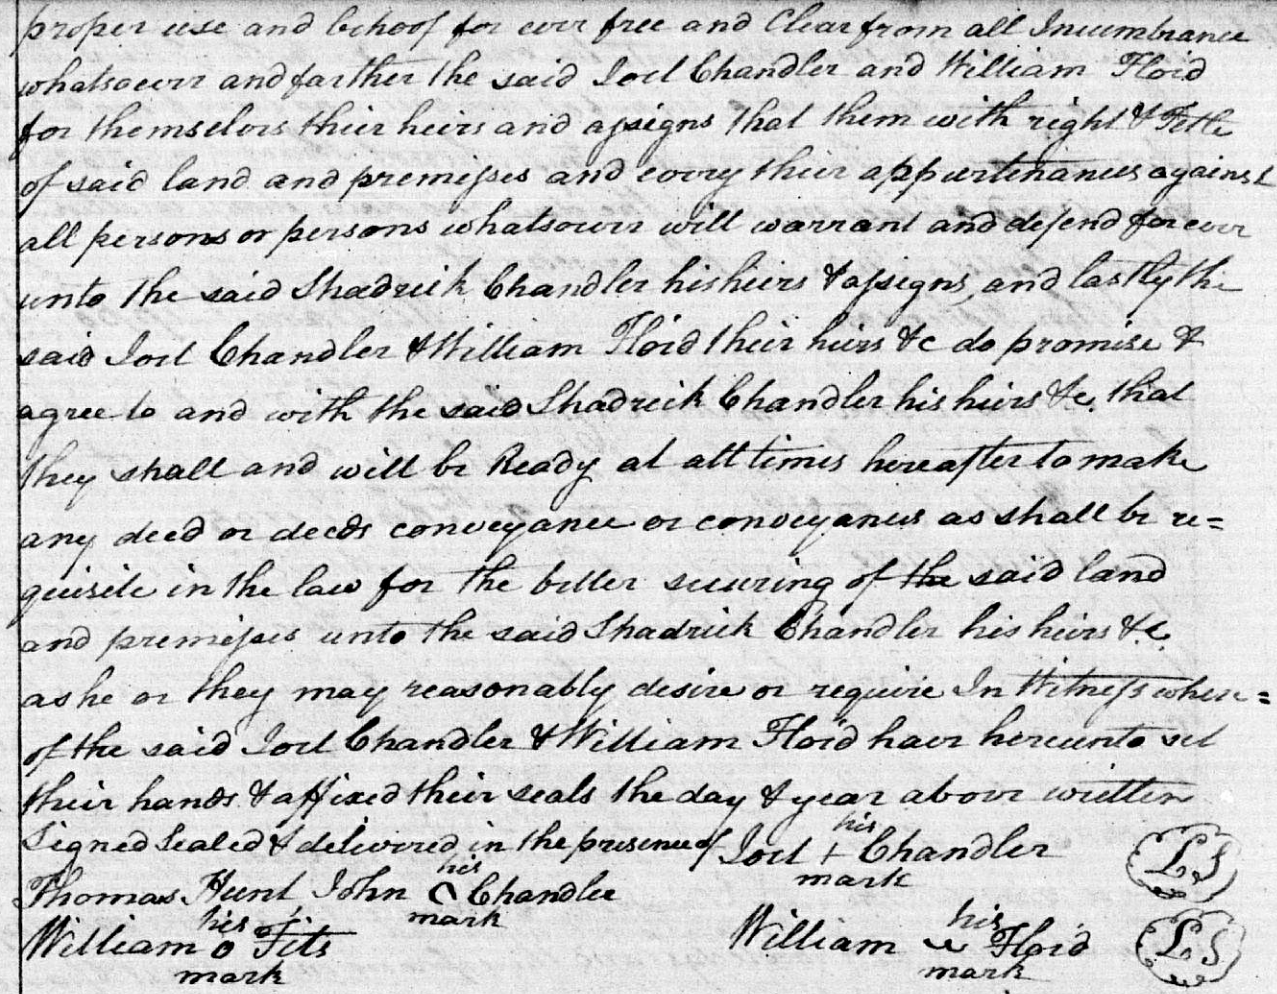 proper use and behoof for ever free and Clear from all Incumbrance
whatsoever and farther the said Joel Chandler and William Floid
for themselves their heirs and assigns that them with right & Title
of said land and premisses and every their appurtenances against
all persons or persons whatsoever will warrant and defend for ever
unto the said Shadrick Chandler his heirs & assigns, and lastly the
said Joel Chandler & William Floid their heirs &c do promise &
agree to and with the said Shadrick Chandler his heirs &c. that
they shall and will be Ready at all times hereafter to make
any deed or deeds conveyance or conveyances as shall be re=
quisite in the law for the better securing of the said land
and premisses unto the said Shadrick Chandler his heirs &c.
as he or they may reasonably desire or require In Witness where=
of the said Joel Chandler & William Floid have hereunto set
their hands & affixed their seals the day & year above written
Signed Sealed & delivered in the presence of Joel his + mark Chandler LS
Thomas Hunt, John his O mark Chandler
William his o mark Fits William his mark Floid LS